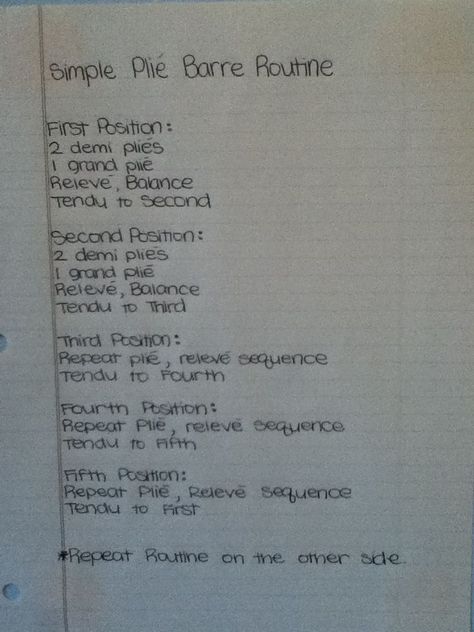 Simple Plié Barre Routine
First Position:
2 demi pliés
1 grand plié
Relevé, Balance
Tendu to Second
Second Position:
2 demi pliés
1 grand plié
Relevé, Balance
Tendu to Third
Third Position:
Repeat plié, relevé sequence
Tendu to Fourth
Fourth Position:
Repeat Plié, relevé sequence
Tendu to Fifth
Fifth Position:
Repeat Plié, Relevé sequence
Tendu to First
*Repeat Routine on the other side.